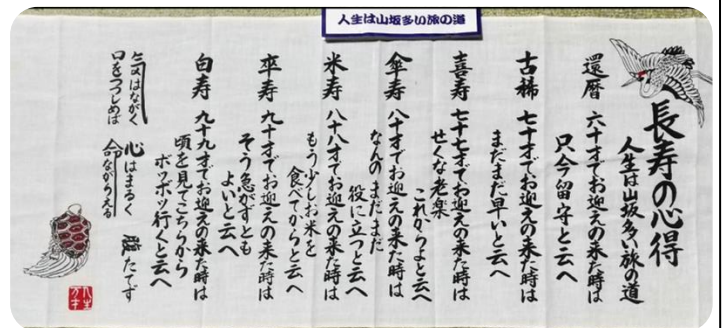 人生は山坂多い旅の道
長寿の心得
人生は山坂多い旅の道
還暦 六十才でお迎えの来た時は
只今留守と云へ
古稀 七十才でお迎えの来た時は
まだまだ早いと云へ
喜寿 七十七才でお迎えの来た時は
せくな老楽
これからよと云へ
傘寿 八十才でお迎えの来た時は
なんのまだまだ
役に立つと云へ
米寿 八十八才でお迎えの来た時は
もう少しお米を
食べてからと云へ
卒寿 九十才でお迎えの来た時は
そう急がずとも
よいと云へ
白寿 九十九才でお迎えの来た時は
頃を見てこちらから
ボツボツ行くと云へ
気はながく 心はまるく 腹たてず
口をつつしめば 命ながらえる
人生万才